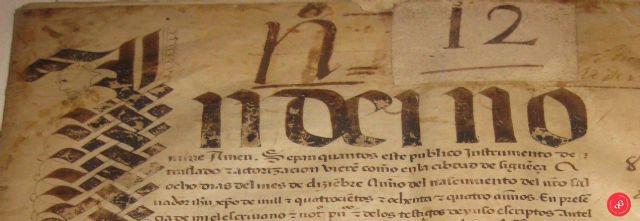 Nº= 12
In dei no
mine Amen. Sepan quantos este publico Instrumento de
traslado z actorizacion vieren como en la cibdad de siguença A
ocho dias del mes de diziēbre Año del nascimiento del nr̄o sal
uador ihū xp̄o de mill z quatroçiētos z ochenta z quatro años. En prese
çia de mi el escriuano z not pu z de los testigos de yuso escriptos ante